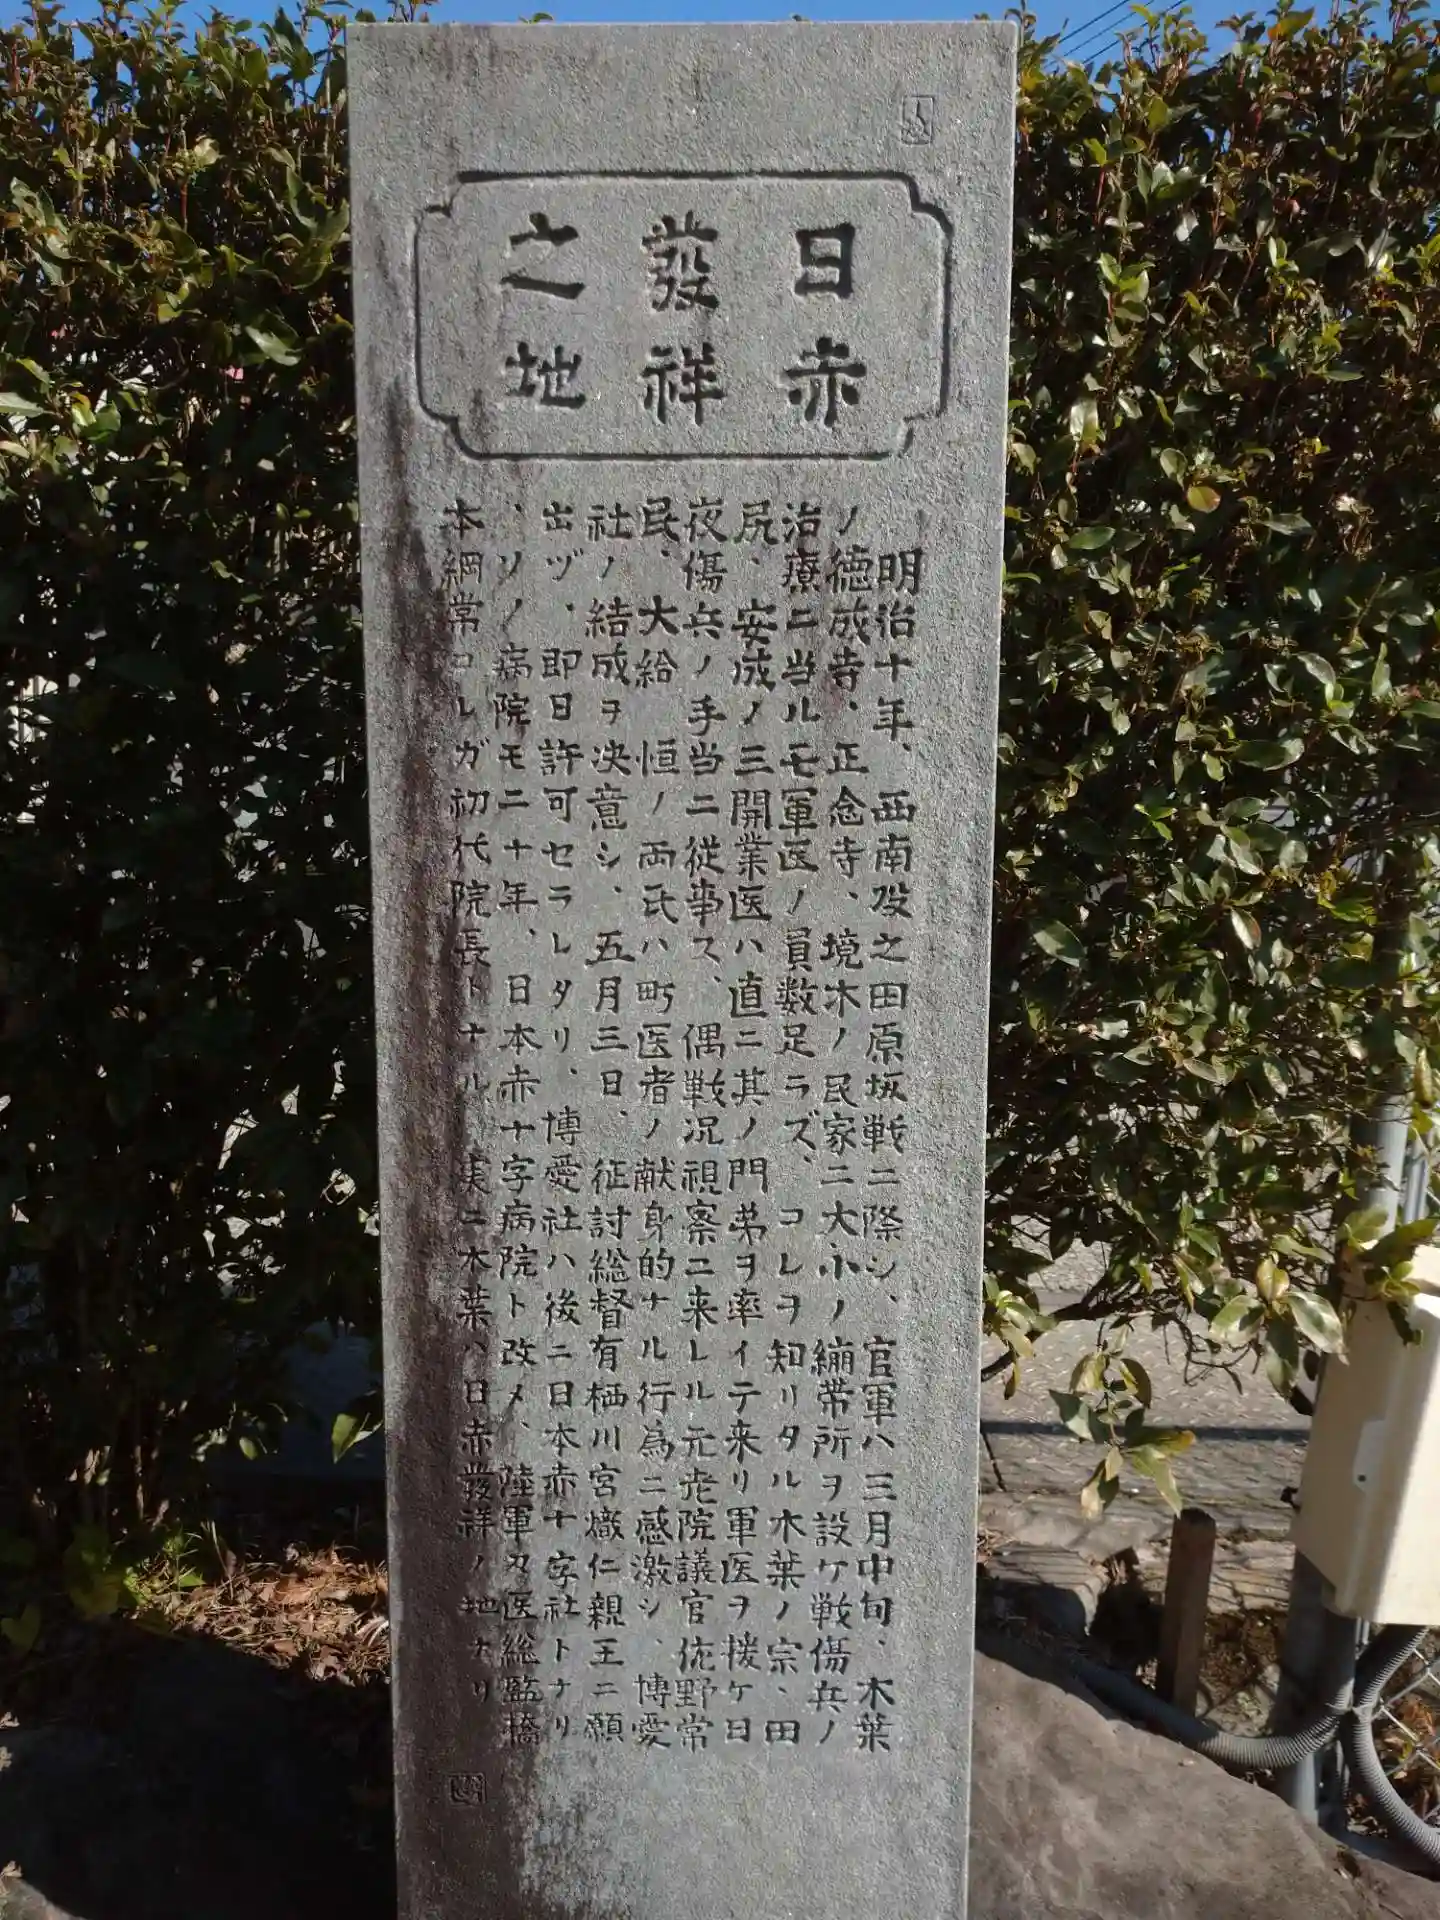 日赤
發祥
之地
明治十年、西南役之田原坂戦ニ際シ、官軍ハ三月中旬、木葉
ノ徳成寺、正念寺、境木ノ民家ニ大小ノ繃帯所ヲ設ケ戦傷兵ノ
治療ニ当ルモ軍医ノ員数足ラズ、コレヲ知リタル木葉ノ宗、田
尻、安成ノ三開業医ハ直ニ其ノ門弟ヲ率イテ来リ軍医ヲ援ケ日
夜傷兵ノ手当ニ従事ス、偶戦況視察ニ来レル元老院議官佐野常
民、大給 恒ノ両氏ハ町医者ノ献身的ナル行為ニ感激シ、博愛
社ノ結成ヲ決意シ、五月三日、征討総督有栖川宮熾仁親王ニ願
出ヅ、即日許可セラレタリ、博愛社ハ後ニ日本赤十字社トナリ
、ソノ病院モ二十年、日本赤十字病院ト改メ、陸軍々医総監橋
本綱常コレガ初代院長トナル、実ニ木葉ハ日赤發祥ノ地ナリ